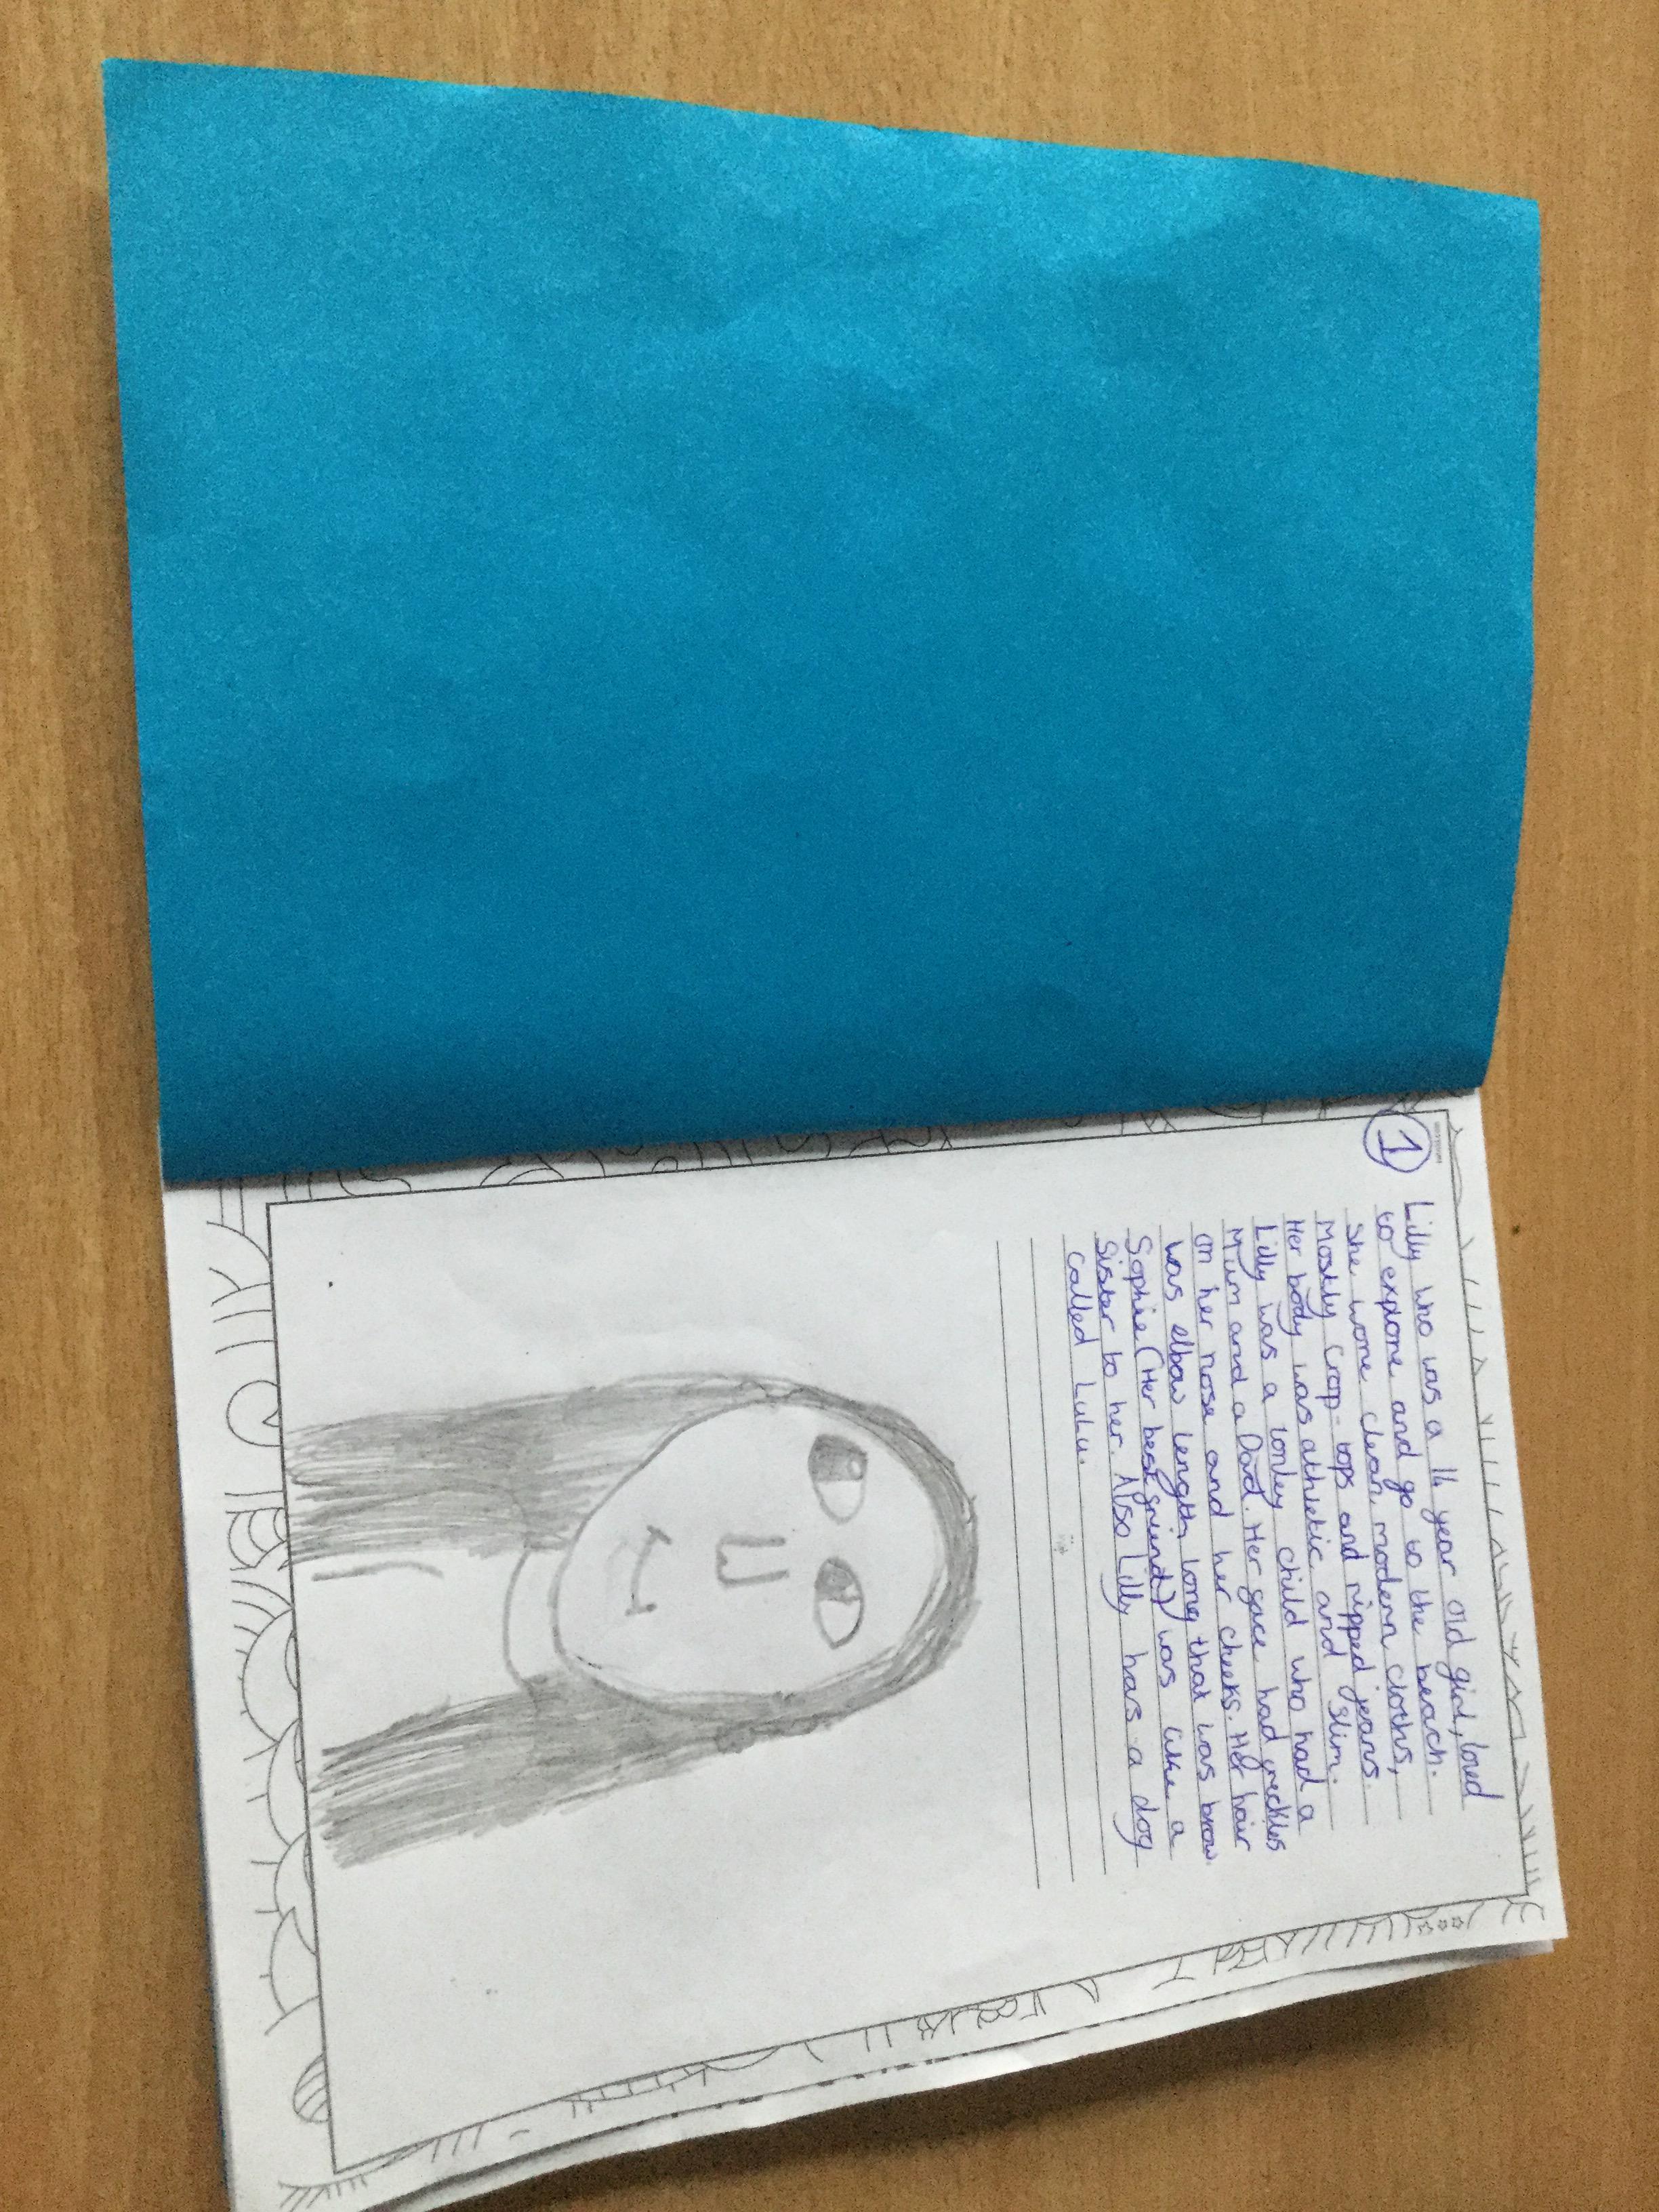 1
Lilly who was a 14 year old girl, loved
to explore and go to the beach.
She wore clean modern cloths,
Mostly crop-tops and ripped jeans.
Her body was athletic and slim.
Lilly was a lonley child who had a
Mum and a Dad. Her face had freckles
on her nose and her cheeks. Her hair
was elbow length long that was brow.
Sophie (Her best friend) was like a
Sister to her. Also Lilly has a dog
called Lulu.